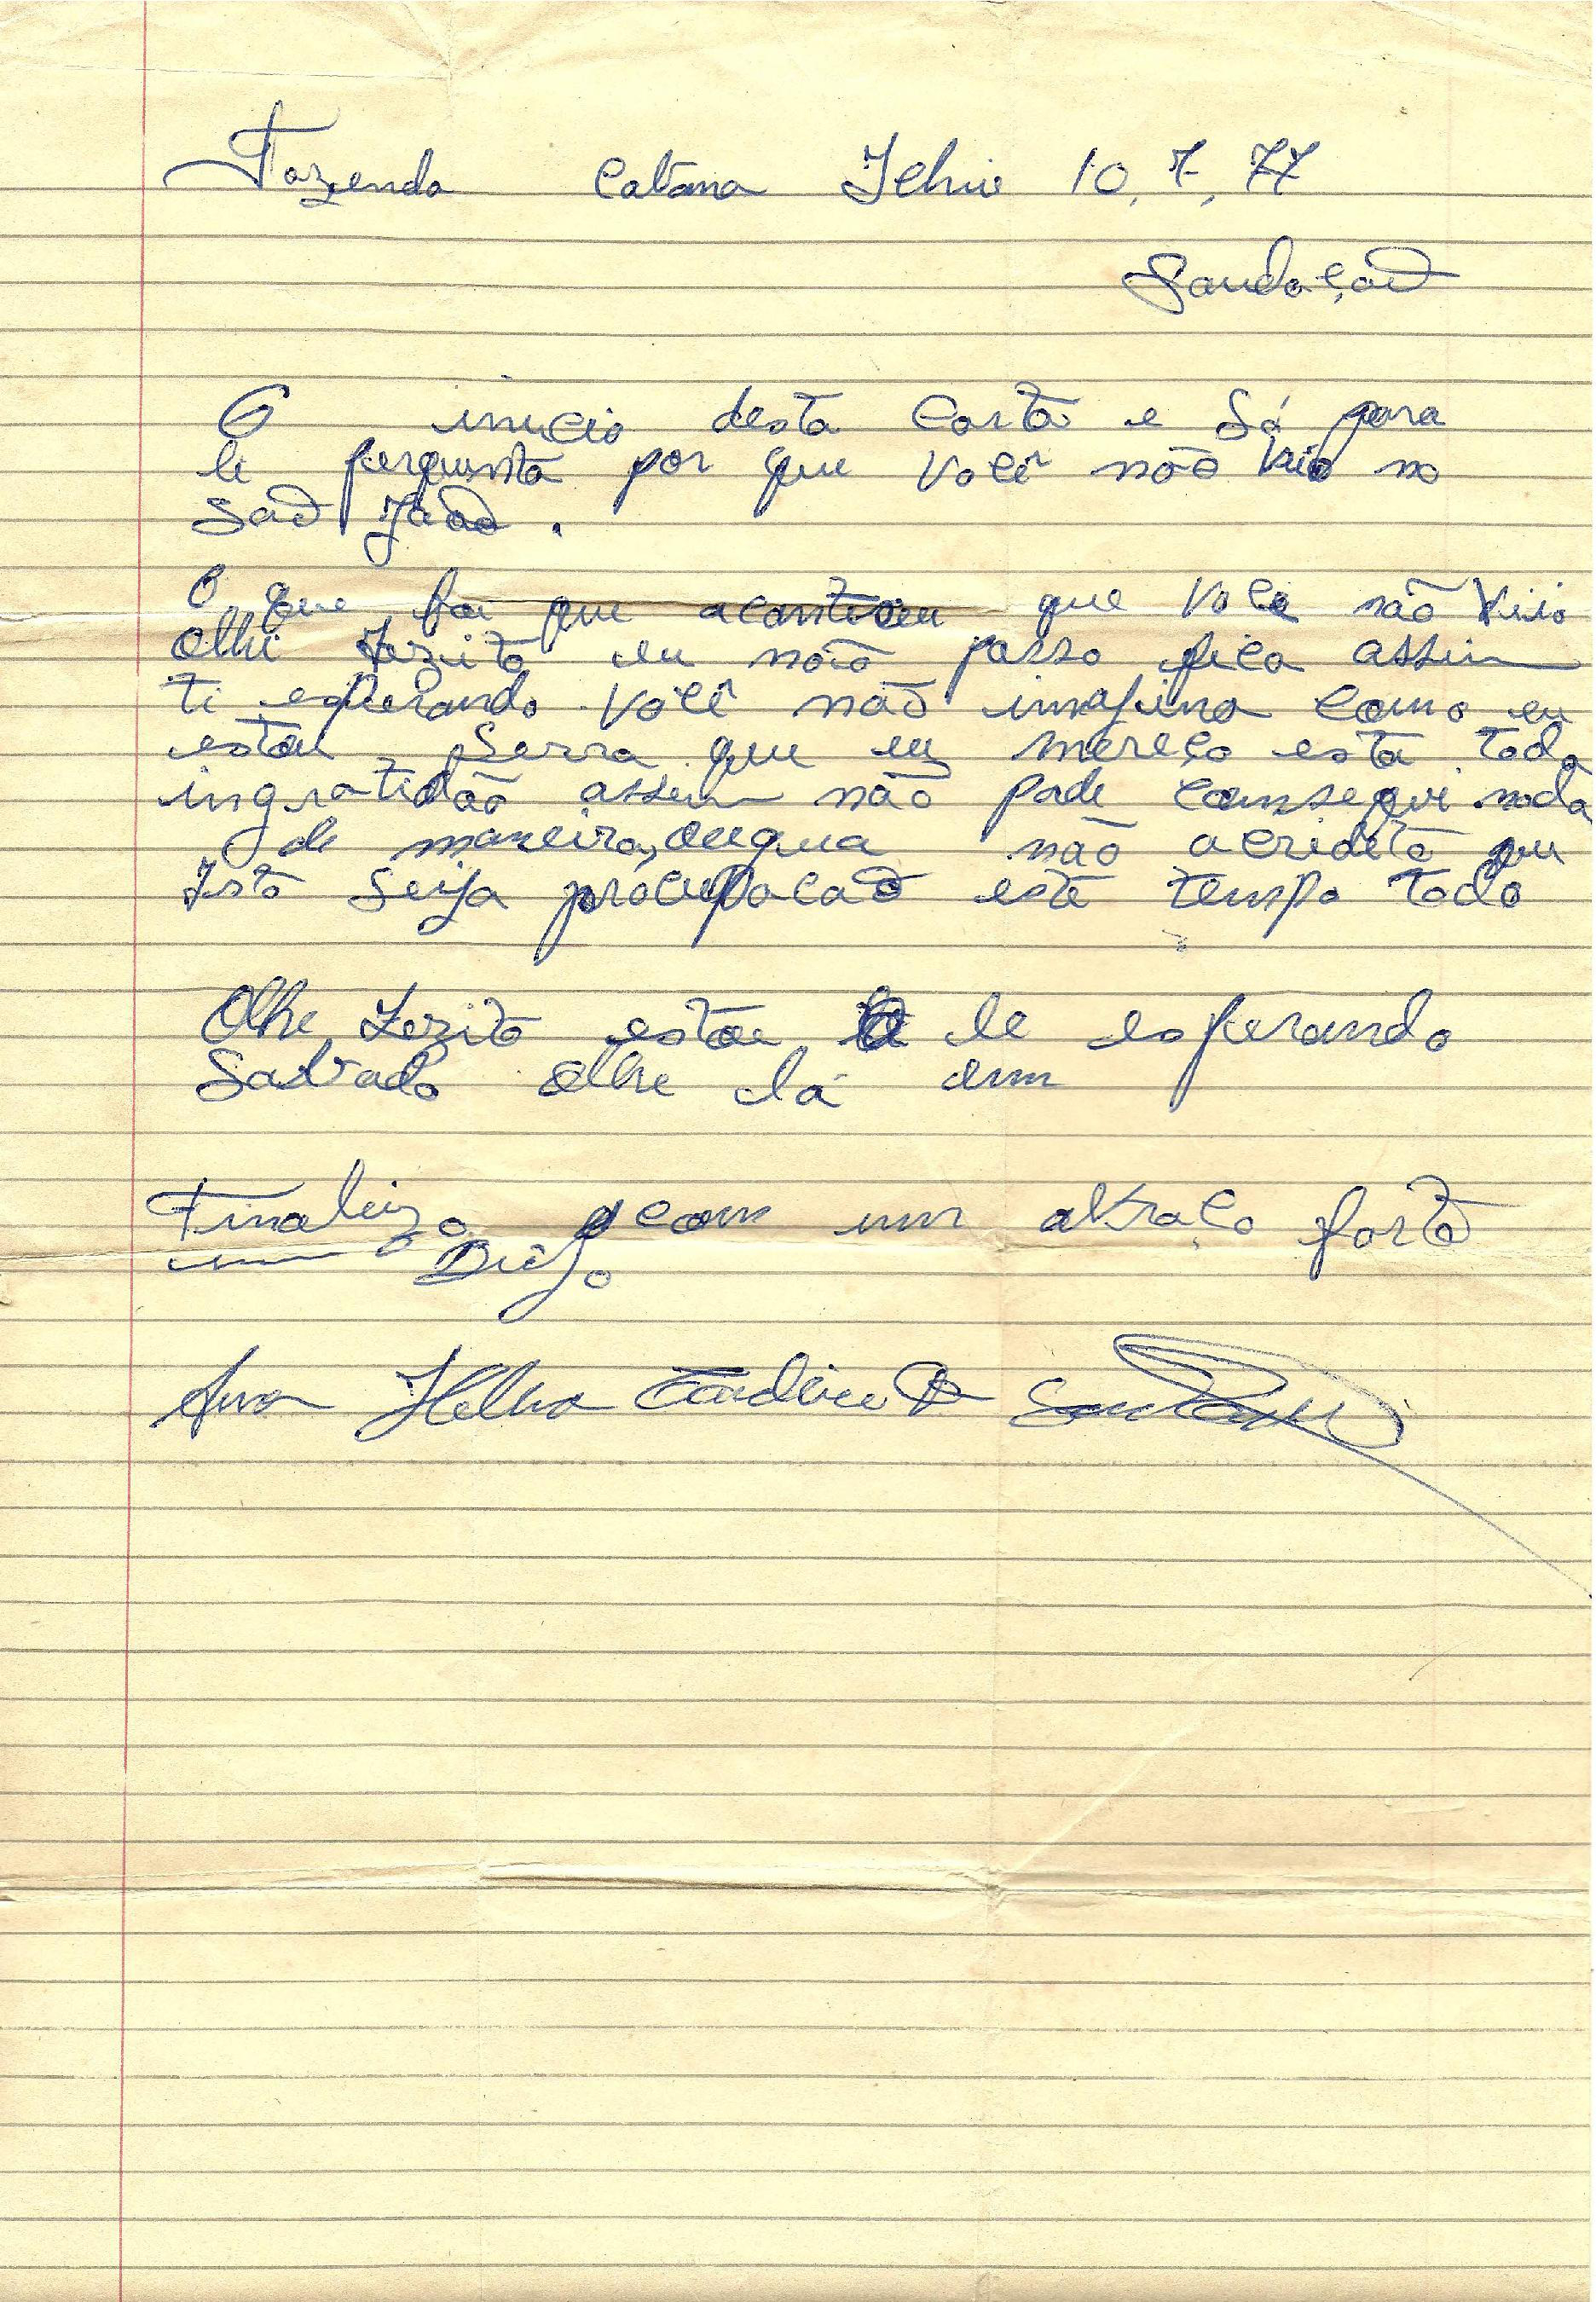 Fazenda Catana Ichu 10, 7, 77
Saudação
O inicio desta Carta e Só para
le pergunta por que Você não veio no
São João.
O que foi que aconteceu que Voce não Veio
olhi Zezito eu não posso fica assim
ti esperando Você não imagina como eu
estou Serra que eu mereço esta toda
ingratidão assim não pode consegui nada
de maneira não acridito que
Isto Seija este tempo todo
Olhe Zezito estou le esperando
Sabado olhe lá em
Finalizo com um abraço forte
um Beijo
Ana